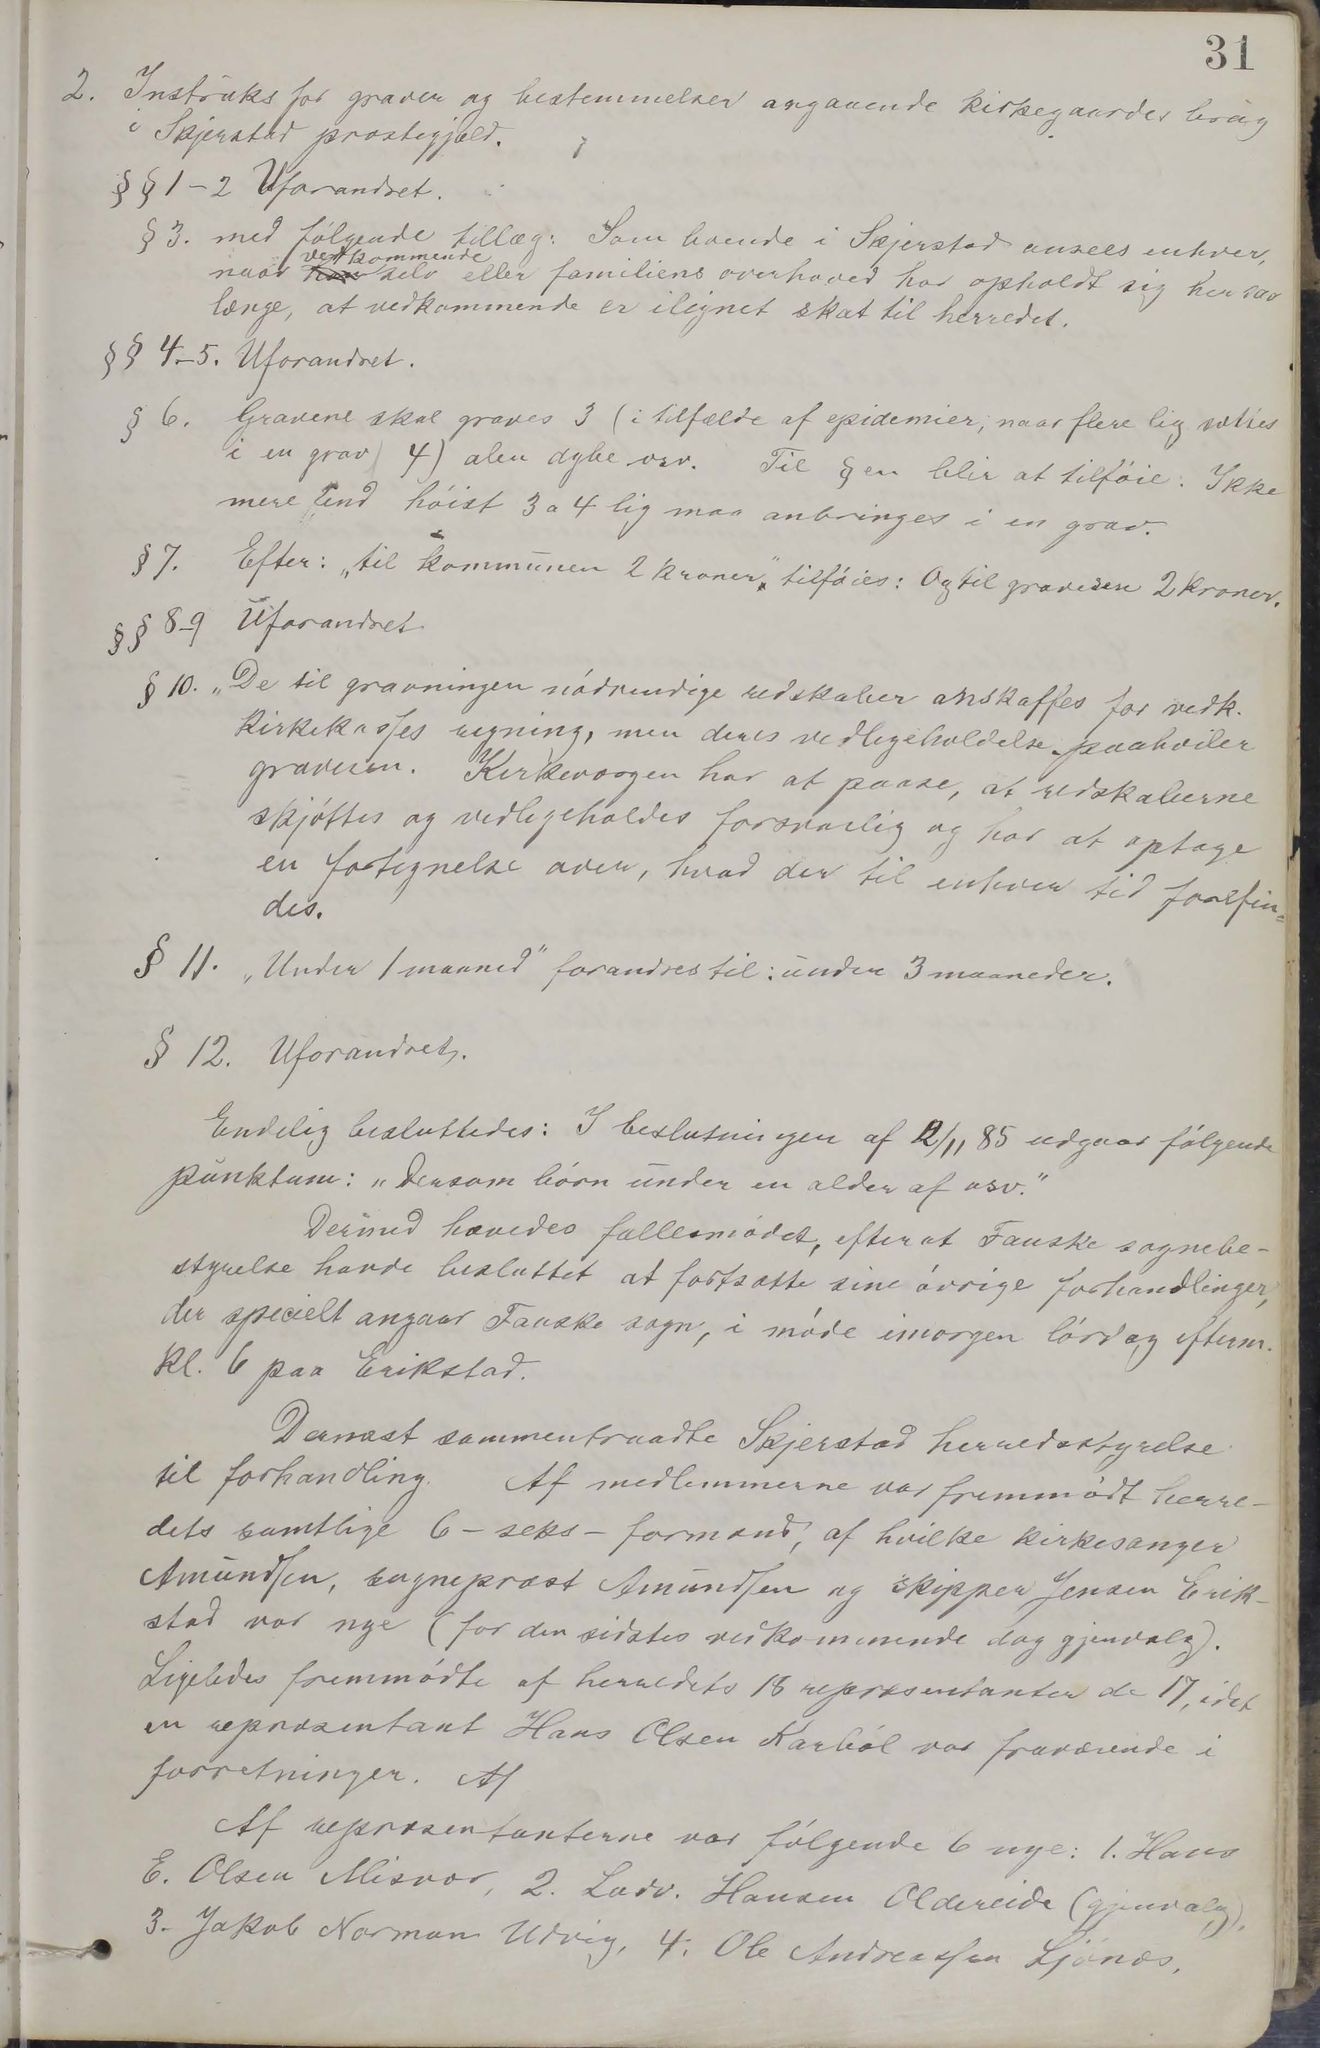 31
2. Instruks for graver og bestemmelser angaaende kirkegaardes brug
i Skjerstad præstegjæld.
§§ 1-2 Uforandret.
§ 3. med følgende tillæg: Som boende i Skjerstad ansees enhver,
naar han vedkommende selv eller familiens overhoved har opholdt sig her saa
længe, at vedkommende er ilignet skat til herredet.
§§ 4-5. Uforandret.
§ 6. Gravene skal graves 3 (i tilfælde af epidemier, naar flere lig sættes
i en grav 4) alen dybe osv. Til §en blir at tilføie: Ikke
mere end høist 3 a 4 lig maa anbringes i en grav.
§ 7. Efter: „til kommunen 2 kroner" tilføies: Og til graveren 2 kroner.
§§ 8-9 Uforandret
§ 10. „De til gravningen nødvendige redskaber anskaffes for vedk.
kirkekasses regning, men deres vedligeholdelse paahviler
graveren. Kirkeværgen har at paase, at redskaberne
skjøttes og vedligeholdes forsvarlig og har at optage
en fortegnelse over, hvad der til enhver tid forefin=
des.
§ 11. „Under 1 maaned" forandres til: under 3 maaneder.
§ 12. Uforandret.
Endelig besluttedes: I beslutningen af 12/11 85 udgaar følgende
punktum: „Dersom børn under en alder af osv."
Dermed hævedes fællesmødet, efterat Fauske sognebe-
styrelse havde besluttet at fortsætte sine øvrige forhandlinger,
der specielt angaar Fauske sogn, i møde imorgen lørdag efterm.
kl. 6 paa Erikstad.
Dernæst sammentraadte Skjerstad herredsstyrelse
til forhandling. Af medlemmerne var fremmødt herre-
dets samtlige 6 - seks - formænd, af hvilke kirkesanger
Amundsen, sogneprest Amundsen og skipper Jensen Erik-
stad var nye (for den sidstes vedkommende dog gjenvalg).
Ligeledes fremmødte af herredets 18 repræsentanter de 17, idet
en repræsentant Hans Olsen Karbøl var fraværende i
forretninger. Af
Af repræsentanterne var følgende 6 nye: 1. Hans
E. Olsen Misvær, 2. Ludv. Hansen Oldereide (gjenvalg),
3. Jakob Norman Udvig, 4. Ole Andreassen Ljønes,